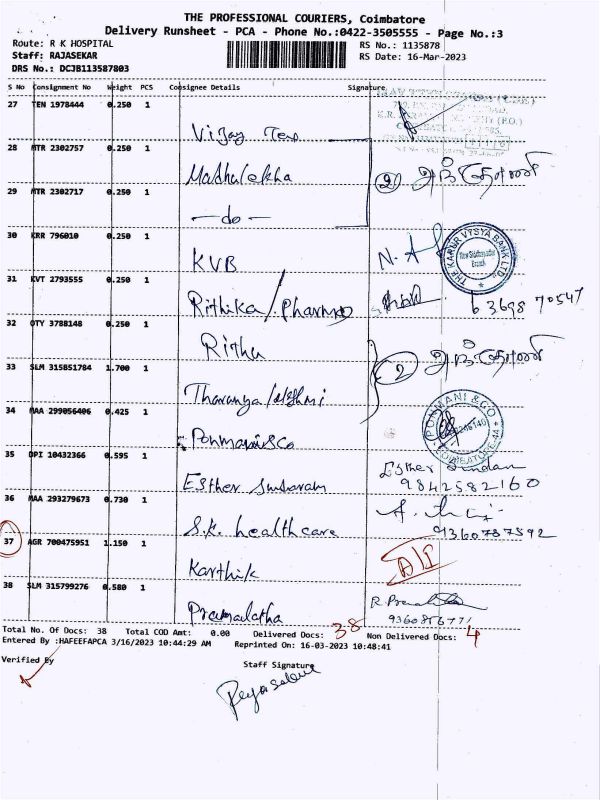 THE PROFESSIONAL COURIERS, Coimbatore
Delivery Runsheet - PCA - Phone No.:0422-3505555 - Page No.:3
Route: R K HOSPITAL
RS No.: 1135878
Staff: RAJASEKAR
RS Date: 16-Mar-2023
DRS No.: DCJB113587803
S No Consignment No Weight PCS Consignee Details Signature
27 TEN 1978444 0.250 1
Vijay
28 MTR 2302757 0.250 1
Madhulekha
29 MTR 2302717 0.250 1
- do -
② அந்தோணி
30 KRR 796010 0.250 1
KVB
THE KARUR VYSYA BANK LTD.
Branch
31 KVT 2793555 0.250 1
Rithika / Pharma
63698 70547
32 OTY 3788148 0.250 1
Rithu
33 SLM 315851784 1.700 1
Tharanya /
② அந்தோணி
34 MAA 299056406 0.425 1
Ponmani &co
PONMANI & CO
COIMBATORE-44
35 DPI 10432366 0.595 1
Esther Sundaram
Esther Sundar
9842582160
36 MAA 293279673 0.730 1
S.K. healthcare
9360787592
37 AGR 700475951 1.150 1
Karthik
38 SLM 315799276 0.580 1
Premalatha
Total No. Of Docs: 38 Total COD Amt: 0.00 Delivered Docs: 38 Non Delivered Docs: 4
Entered By :HAFEEFAPCA 3/16/2023 10:44:29 AM Reprinted On: 16-03-2023 10:48:41
Verified By
Staff Signature